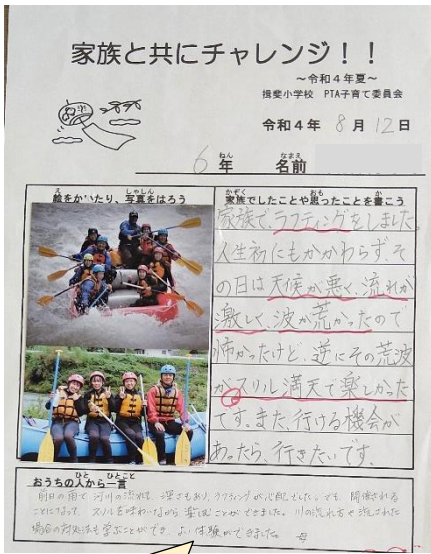 家族と共にチャレンジ！！
～令和４年夏～
揖斐小学校　PTA子育て委員会
令和４年 8 月 12 日
6 年　名前
絵をかいたり、写真をはろう
家族でしたことや思ったことを書こう
家族で、ラフティングをしました。
人生初にもかかわらず、そ
の日は天候が悪く、流れが
激しく、波が荒かったので
怖かったけど、逆にその荒波
がスリル満天で楽しかった
です。また、行ける機会が
あったら、行きたいです。
おうちの人から一言
前日の雨で河川の流れも、深さもあり、ラフティングが心配でした。でも、開催される
ことになって、スリルを味わいながら楽しむことができました。川の流れ方や流された
場合の対処法も学ぶことができ、よい体験ができました。　母